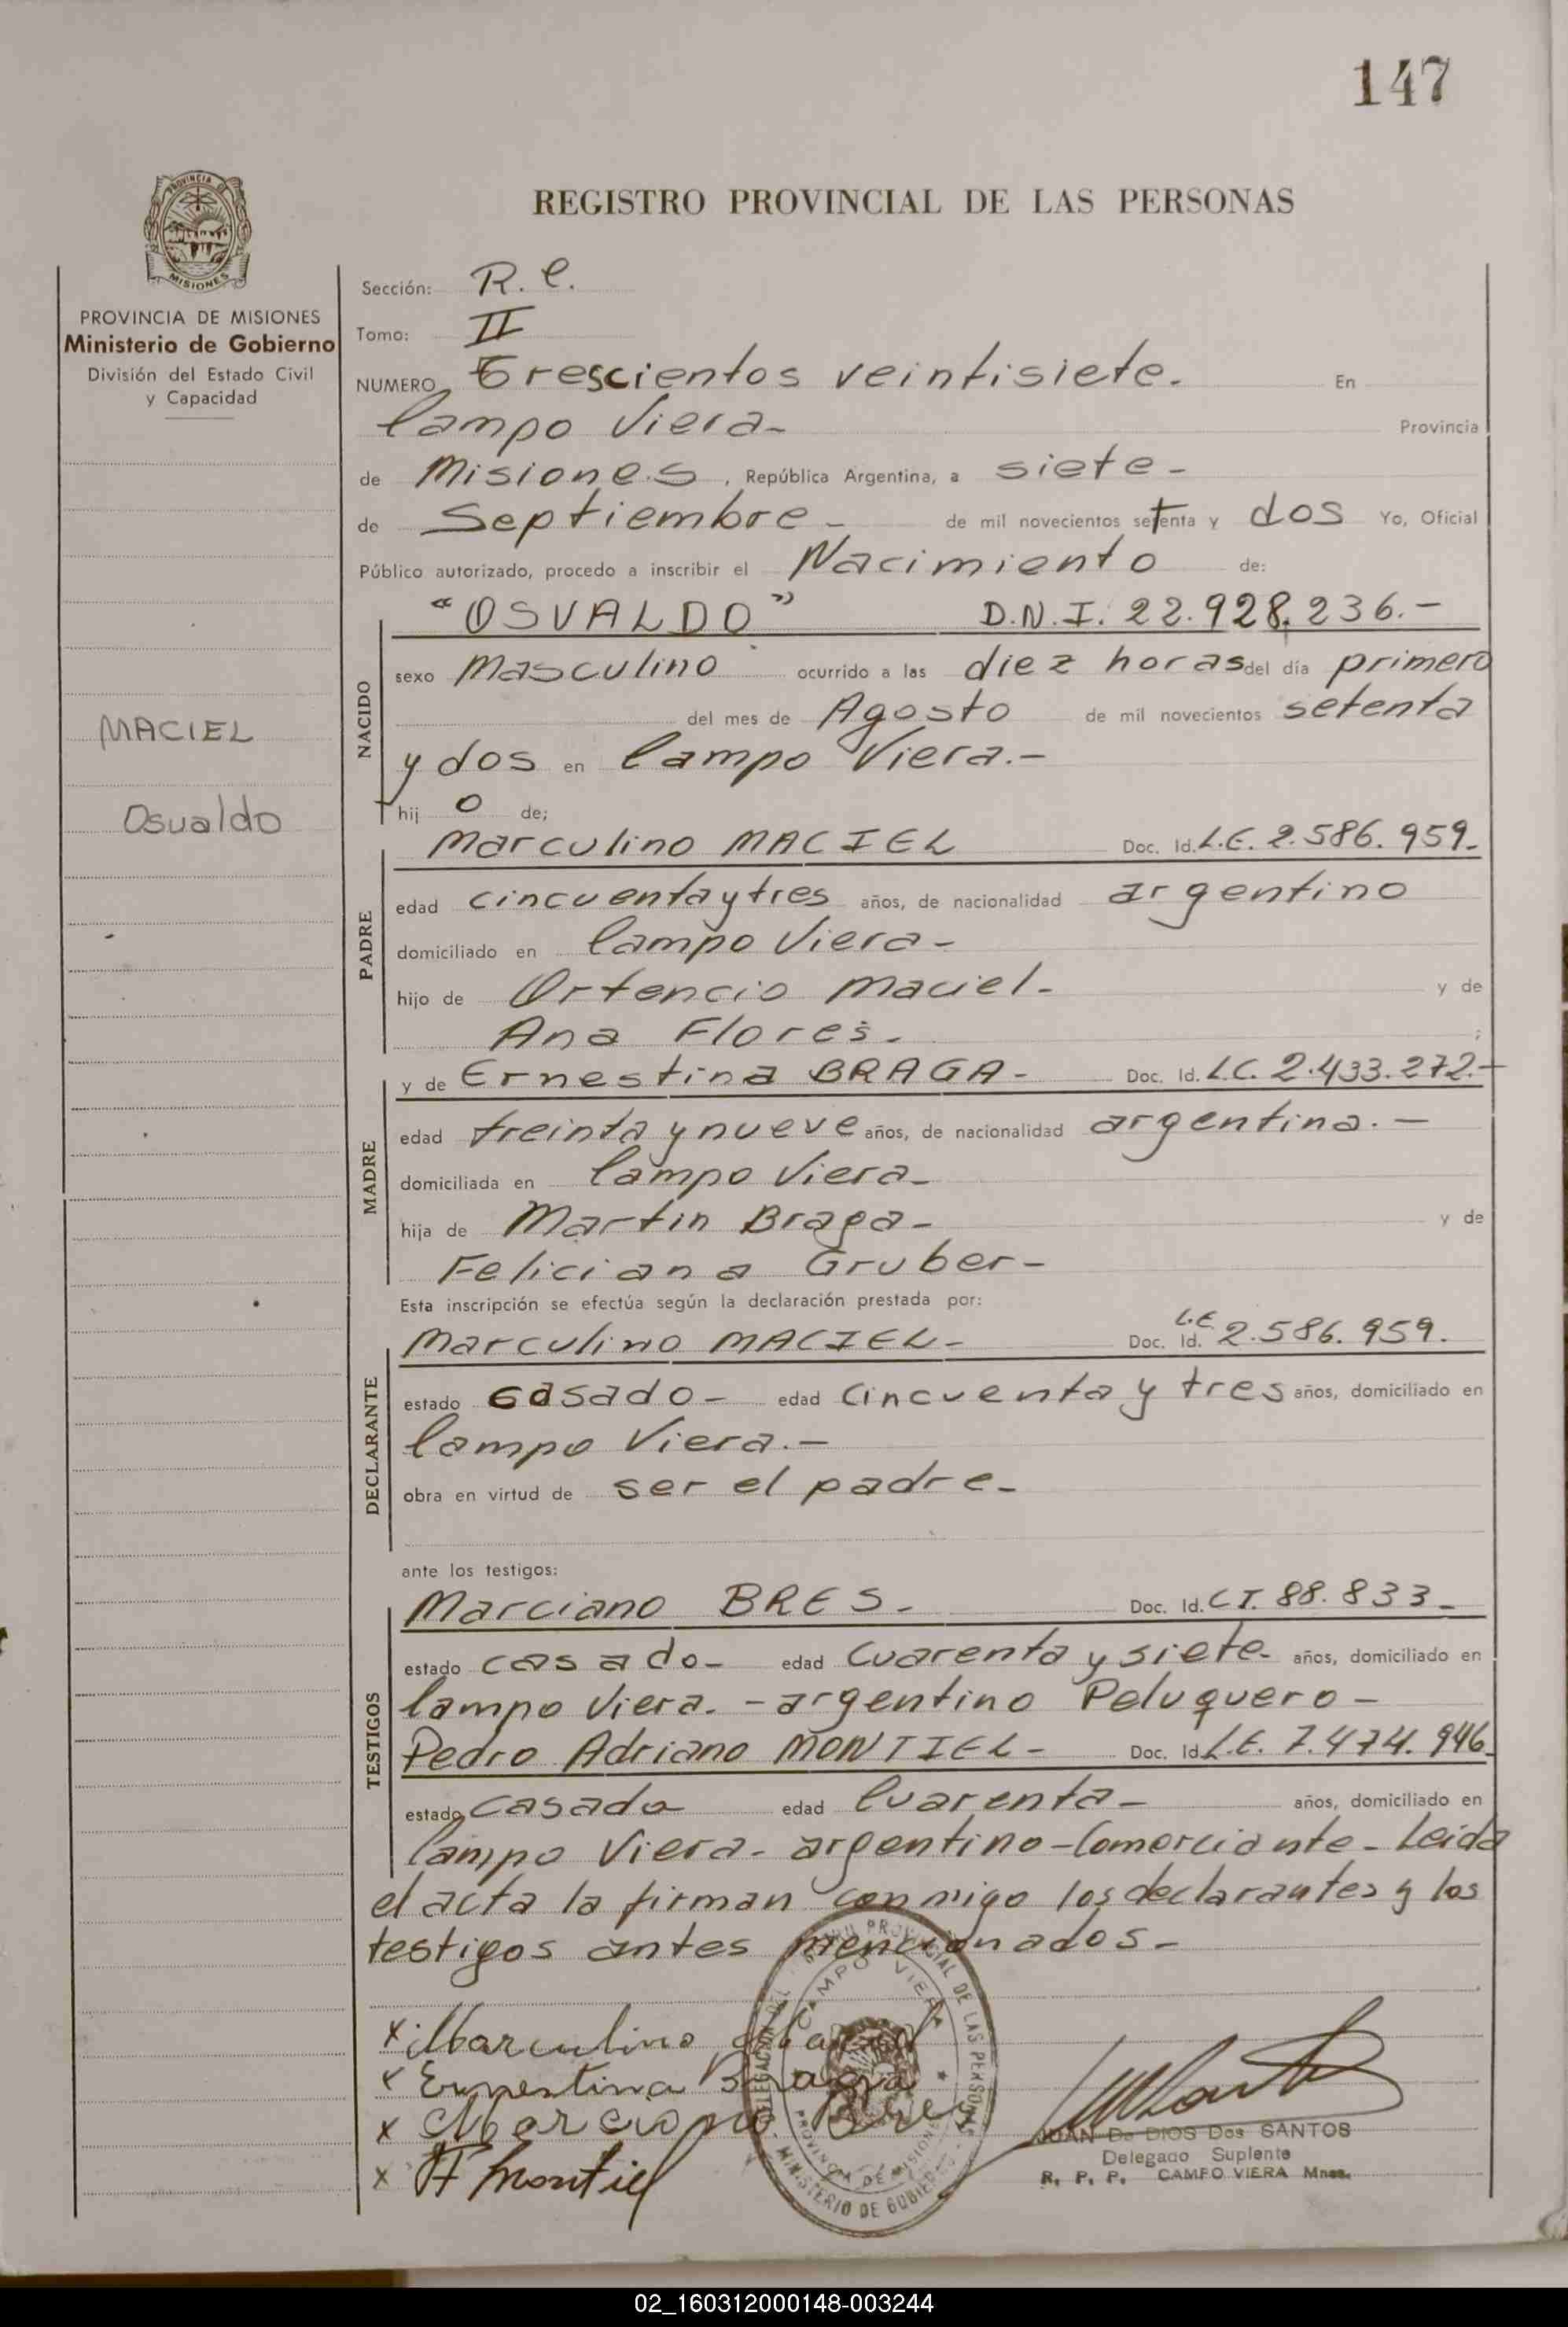 147
PROVINCIA DE
MISIONES
PROVINCIA DE MISIONES
Ministerio de Gobierno
División del Estado Civil
y Capacidad
MACIEL
Osvaldo
REGISTRO PROVINCIAL DE LAS PERSONAS
Sección: R. C.
Tomo: II
NUMERO Trescientos veintisiete. En
Campo Viera- Provincia
de Misiones, República Argentina, a siete-
de Septiembre- de mil novecientos setenta y dos Yo, Oficial
Público autorizado, procedo a inscribir el Nacimiento de:
"OSVALDO" D.N.I. 22.928.236.-
NACIDO
sexo Masculino ocurrido a las diez horas del día primero
del mes de Agosto de mil novecientos setenta
y dos en Campo Viera.-
hijo de;
Marculino MACIEL Doc. Id. L.E. 2.586.959-
PADRE
edad cincuenta y tres años, de nacionalidad argentino
domiciliado en Campo Viera-
hijo de Ortencio Maciel- y de
Ana Flores. ;
y de Ernestina BRAGA- Doc. Id. L.C. 2.433.272.-
MADRE
edad treinta y nueve años, de nacionalidad argentina.-
domiciliada en Campo Viera-
hija de Martin Braga- y de
Feliciana Gruber-
Esta inscripción se efectúa según la declaración prestada por:
Marculino MACIEL- Doc. Id. L.E. 2.586.959.
DECLARANTE
estado casado- edad cincuenta y tres años, domiciliado en
Campo Viera.-
obra en virtud de ser el padre-
ante los testigos:
Marciano BRES- Doc. Id. C.I. 88.833-
TESTIGOS
estado casado- edad cuarenta y siete- años, domiciliado en
Campo Viera.- argentino Peluquero-
Pedro Adriano MONTIEL- Doc. Id. L.E. 7.474.946-
estado casado edad Cuarenta- años, domiciliado en
Campo Viera- argentino-Comerciante- Leida
el acta la firman conmigo los declarantes y los
testigos antes mencionados-
x Marculino Maciel
x Ernestina Braga
x Marciano Bres
x Montiel
DELEGACION DEL PROVINCIAL DE LAS PERSONAS
CAMPO VIERA
PROVINCIA DE MISIONES
MINISTERIO DE GOBIERNO
JUAN De DIOS Dos SANTOS
Delegado Suplente
R. P. P. CAMPO VIERA Mnes.
02_160312000148-003244